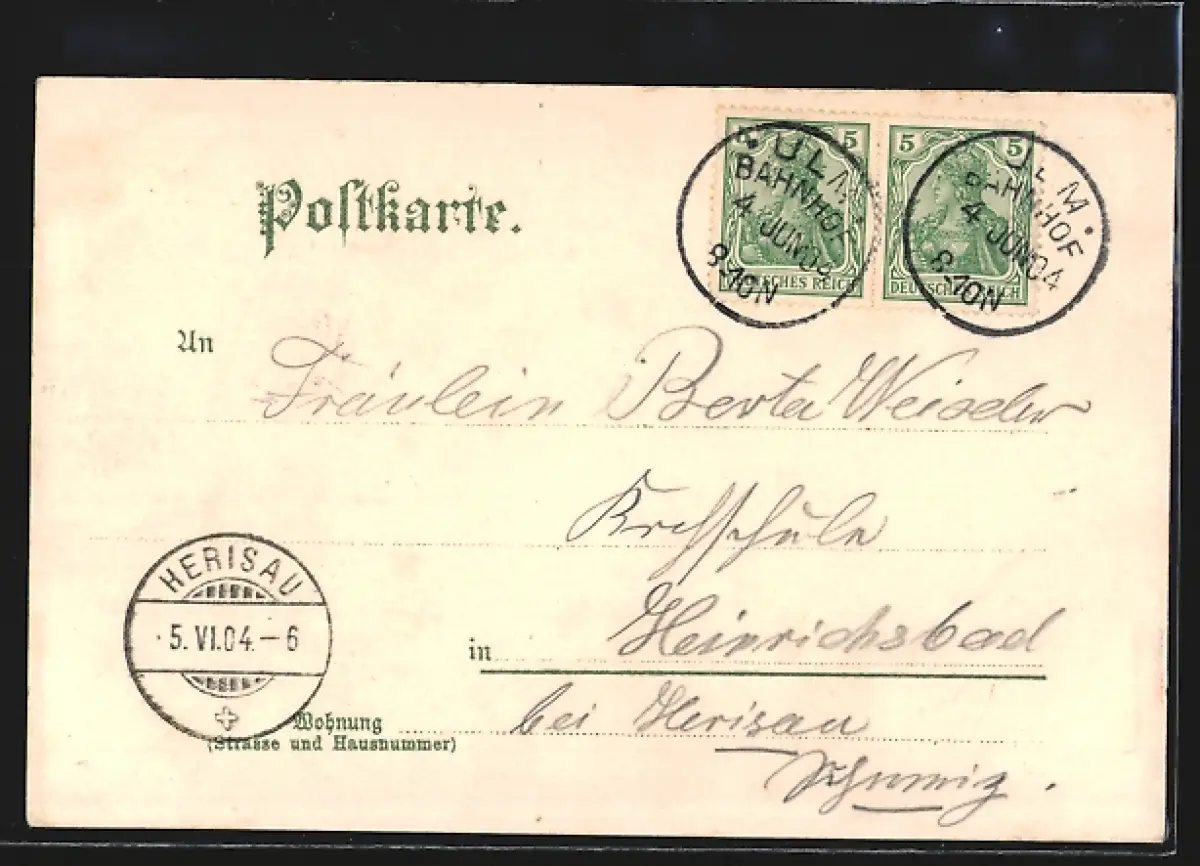 5 5
DEUTSCHES REICH
5 5
DEUTSCHES REICH
ULM
BAHNHOF
4 JUN 04
8-10N
ULM
BAHNHOF
4 JUN 04
8-10N
Postkarte.
An Fräulein Berta
in Heinrichsbad
bei Herisau
Schweiz.
Wohnung
(Strasse und Hausnummer)
HERISAU
5. VI. 04. - 6